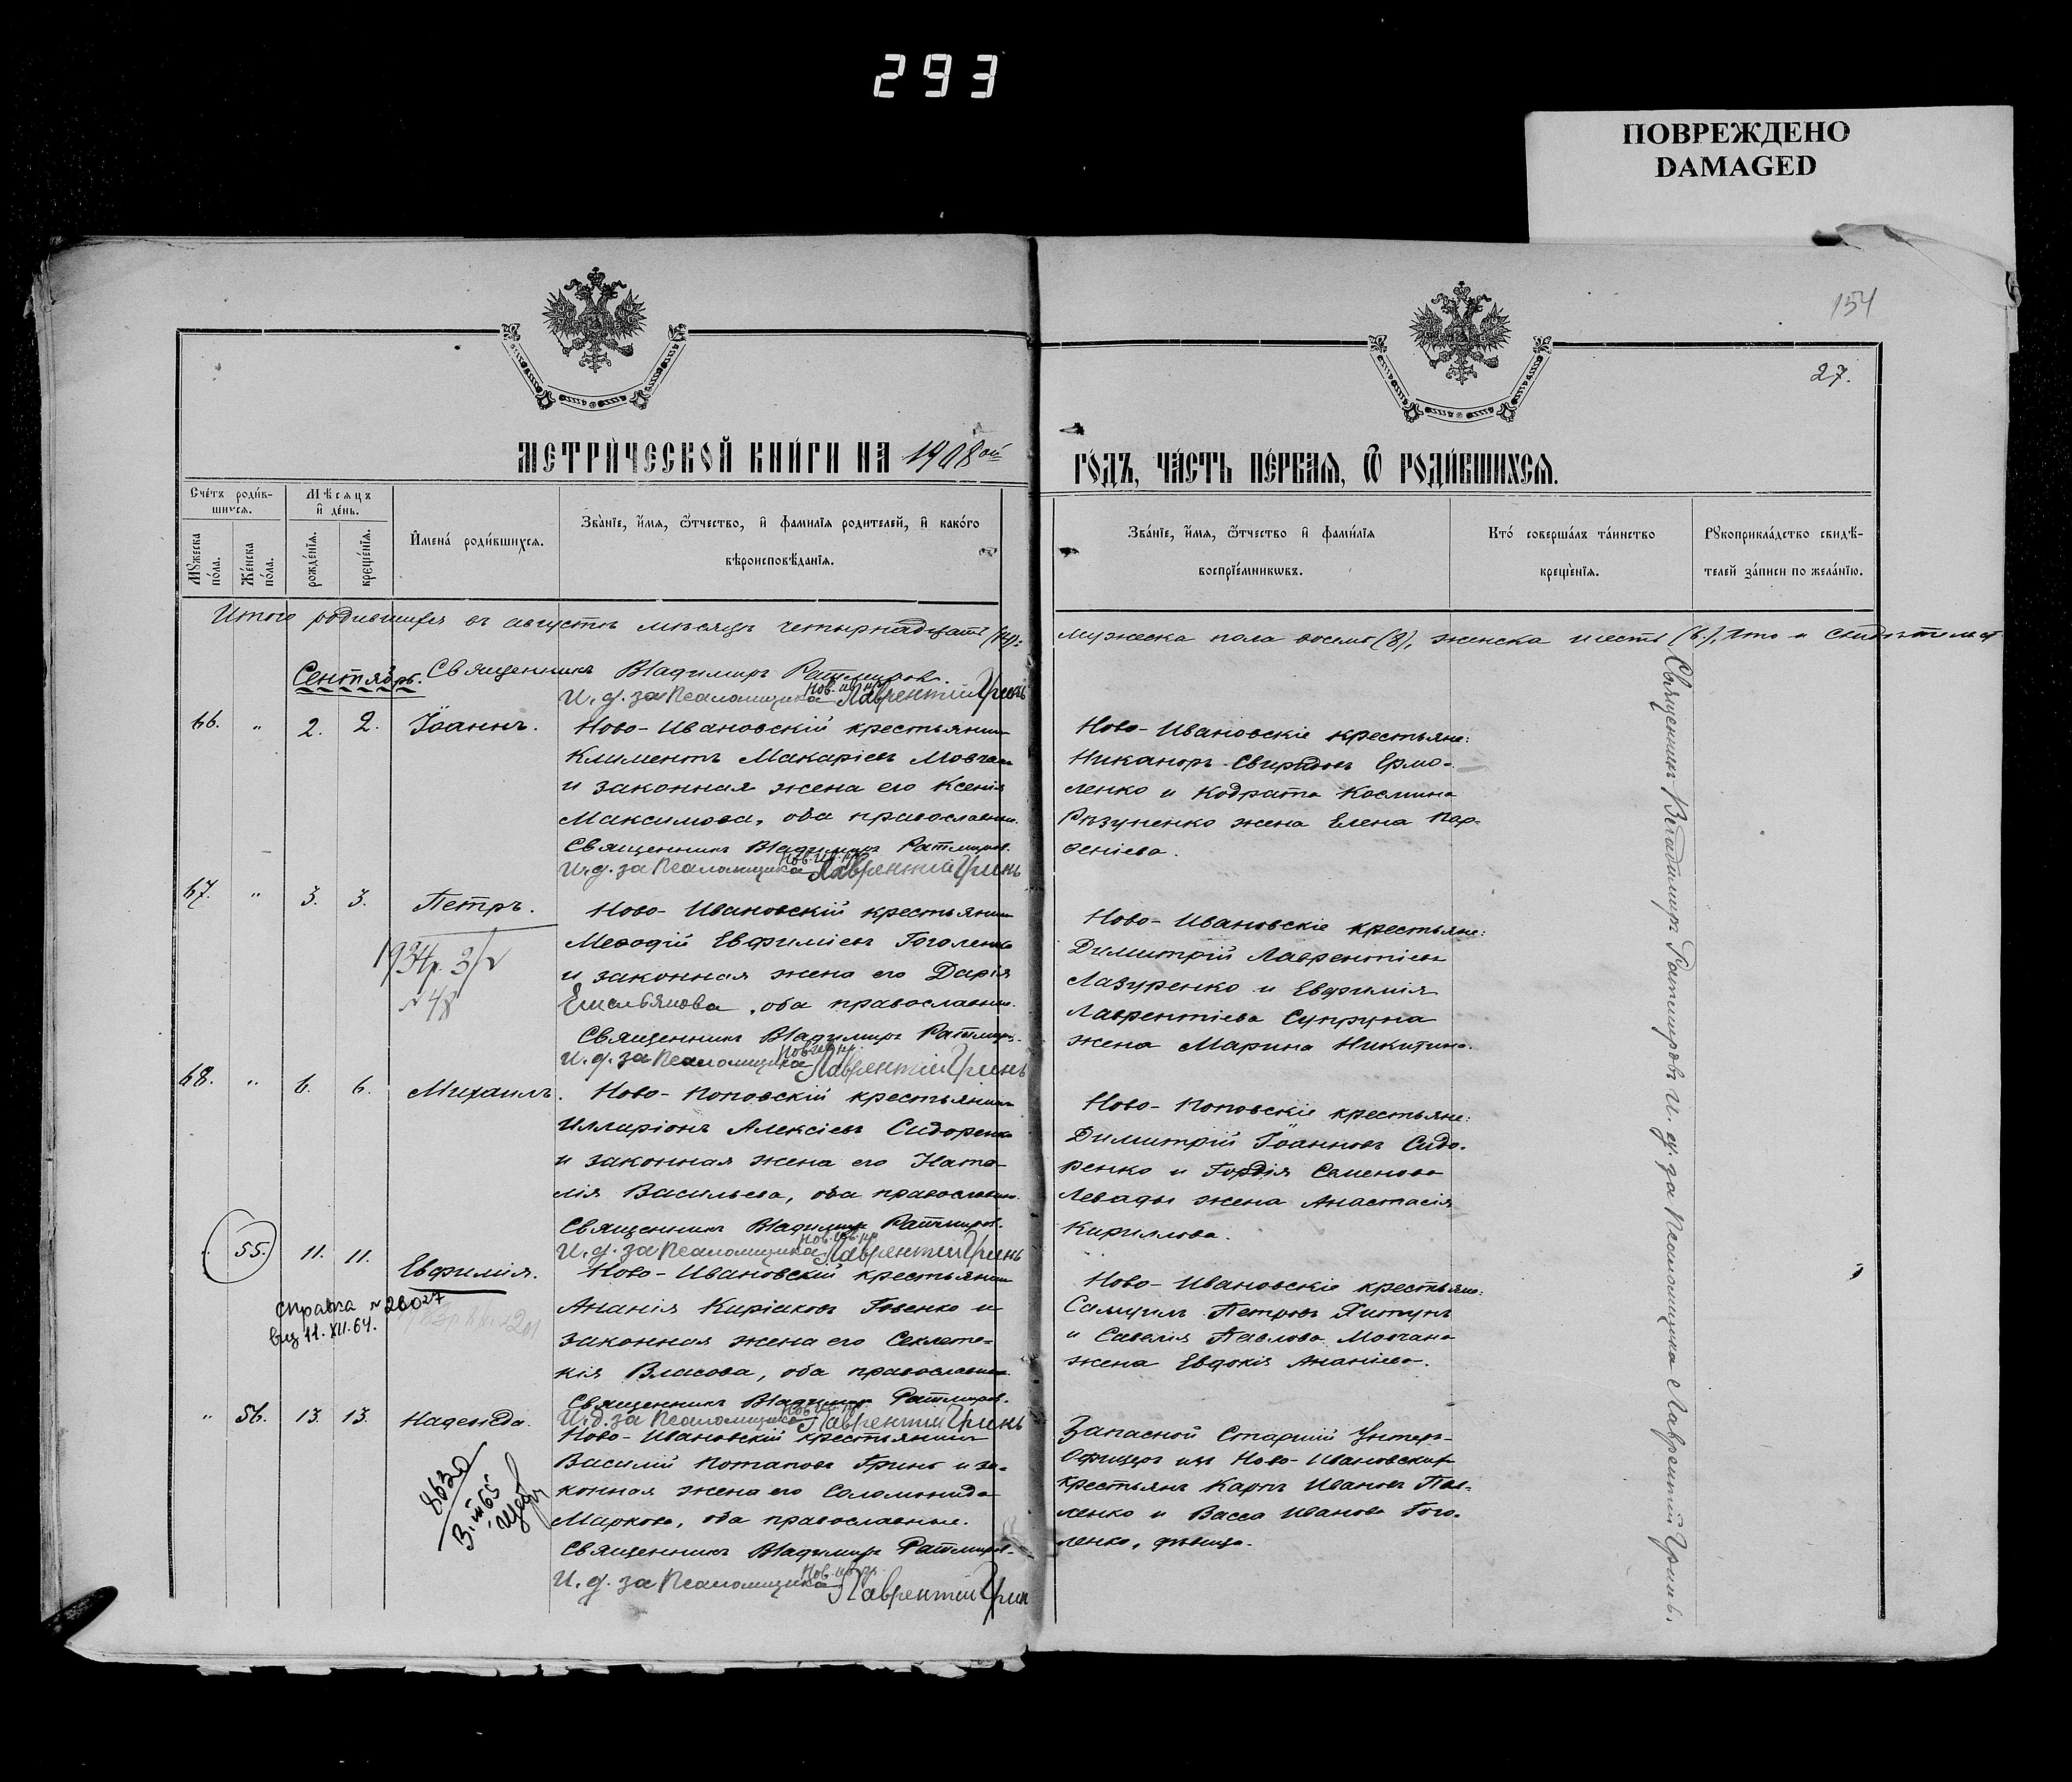 293
ПОВРЕЖДЕНО
DAMAGED
154
27.
МЕТРИЧЕСКОЙ КНИГИ НА 1908 ой
ГОДЪ, ЧАСТЬ ПЕРВАЯ, Ѡ РОДИВШИХСЯ.
Счетъ родив-
шихся.
Мѣсяцъ
и день.
Мужеска пола.
Женска пола.
рожденія.
крещенія.
Имена родившихся.
Званіе, имя, ѿчество, и фамилія родителей, и какого
вѣроисповѣданія.
Званіе, имя, ѿчество и фамилія
воспріемниковъ.
Кто совершалъ таинство
крещенія.
Рукоприкладство свидѣ-
телей записи по желанію.
Итого родившихся въ августѣ мѣсяцѣ четырнадцать (14):
мужеска пола восемь (8), женска шесть (6.), что и свидѣтельст
Сентябрь. Священникъ Владимиръ Ратмировъ.
И. д. за Псаломщика Нов-ив. кр. Лаврентій Гринь
66. " 2. 2. Іоаннъ.
Ново-Ивановскій крестьянинъ
Климентъ Макаріевъ Мовчан
и законная жена его Ксенія
Максимова, оба православные.
Священникъ Владимиръ Ратмиров.
И. д. за Псаломщика Нов-ив. кр. Лаврентій Гринь
Ново-Ивановскіе крестьяне:
Никаноръ Свиридовъ Ермо-
ленко и Кодрата Космина
жена Елена Пар-
ѳеніева.
67. " 3. 3. Петръ.
1934р. 3/V
№ 48
Ново-Ивановскій крестьянин
Меѳодій Евфиміевъ Гоголенко
и законная жена его Дарія
Емельянова, оба православные.
Священникъ Владимиръ Ратмиръ.
И. д. за Псаломщика Нов-ив. кр. Лаврентій Гринь
Ново-Ивановскіе крестьяне:
Димитрій Лаврентіевъ
Лазуренко и Евфимія
Лаврентіева Супруна
жена Марина Никитина.
68. " 6. 6. Михаилъ.
Ново-Поповскій крестьянинъ
Илларіонъ Алексіевъ Сидоренко
и законная жена его Ната-
лія Васильева, оба православные.
Священникъ Владимиръ Ратмиров.
И. д. за Псаломщика Нов-ив. кр. Лаврентій Гринь
Ново-Поповскіе крестьяне:
Димитрій Іоанновъ Сидо-
ренко и Гордія Семенова
Левады жена Анастасія
Кириллова.
" 55. 11. 11. Евфимія.
справка № 28027
выд 11. XII. 64.
Ново-Ивановскій крестьянинъ
Ананія Киріаковъ Говенко и
законная жена его Секлети-
кія Власова, оба православные.
Священникъ Владимиръ Ратмиров.
И. д. за Псаломщика Нов-ив. кр. Лаврентій Гринь
Ново-Ивановскіе крестьяне:
Самуилъ Петровъ Хитунъ
и Савелія Павлова Мовчана
жена Евдокія Ананіева.
" 56. 13. 13. Надежда.
8630
Ново-Ивановскій крестьянинъ
Василій Потаповъ Гринь и за-
конная жена его Соломонида
Маркова, оба православные.
Священникъ Владимиръ Ратмиров.
И. д. за Псаломщика Нов-ив. кр. Лаврентій Грин
Запасной Старшій Унтеръ-
Офицеръ изъ Ново-Ивановскихъ
крестьянъ Карпъ Ивановъ Пав-
ленко и Васса Иванова Гого-
ленко, дѣвица.
Священникъ Владимиръ Ратмировъ И. д. за Псаломщика Лаврентій Гринь.